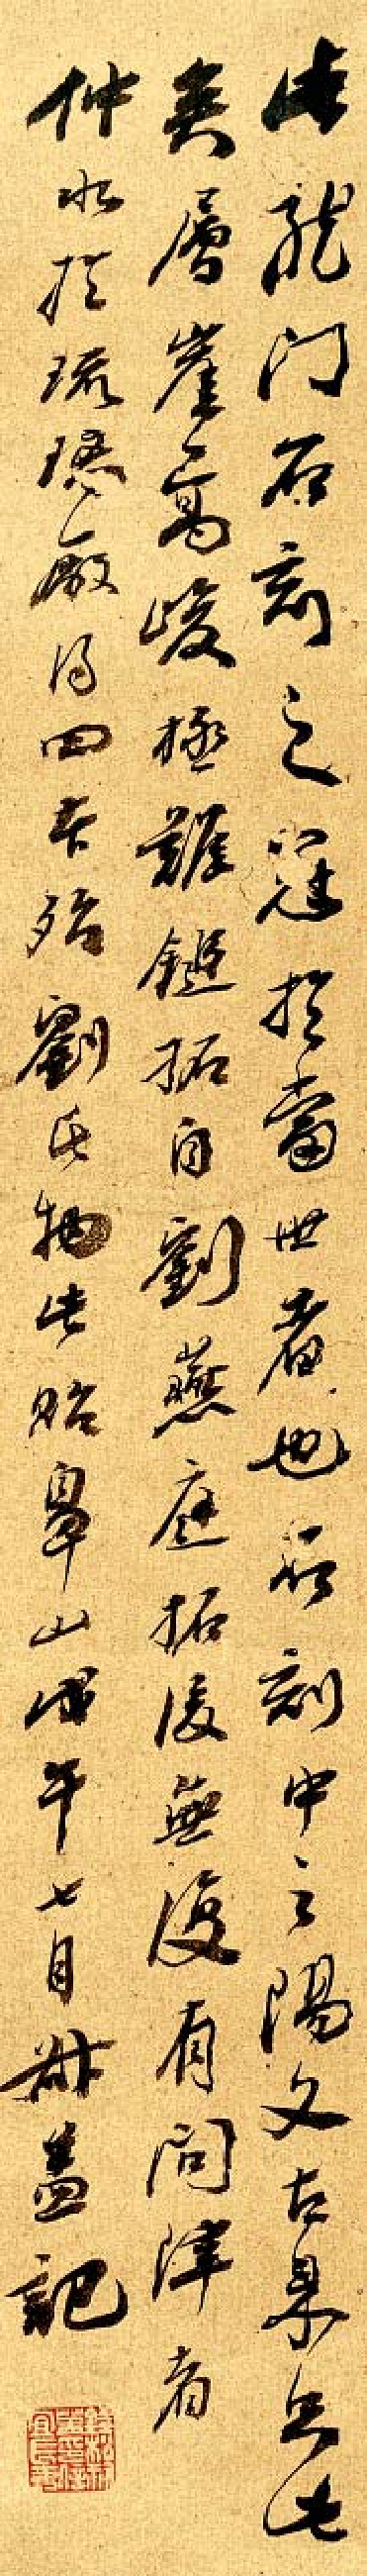 此龍門石刻之冠於當世者也石刻中之陽文古最出此
矣層崖高峻極難鎚拓自劉燕庭拓後無復有問津者
仲冰於琉璃廠得四本殆劉氏物此貽皋山戊午七月叔蓋記